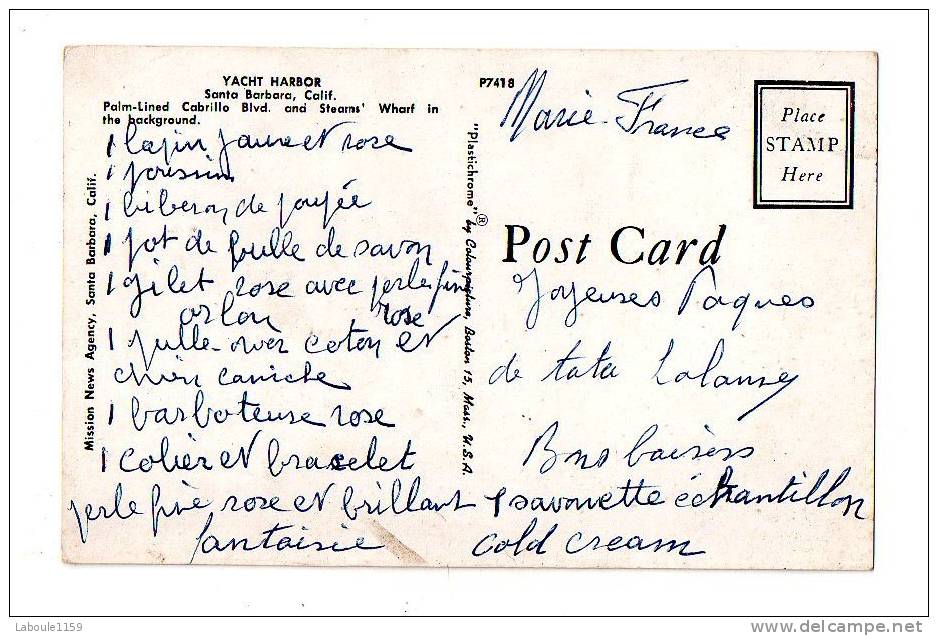 YACHT HARBOR
Santa Barbara, Calif.
Palm-Lined Cabrillo Blvd. and Stearns' Wharf in
the background.
1 lapin jaune et rose
1 poussin
1 biberon de poupée
1 pot de bulle de savon
1 gilet rose avec perle fine
orlon rose
1 pulle-over coton et
chien caniche
1 barboteuse rose
1 colier et bracelet
perle fine rose et brillant
fantaisie
Mission News Agency, Santa Barbara, Calif.
P7418
"Plastichrome" ® by Colourpicture, Boston 15, Mass., U.S.A.
Marie-France
Place
STAMP
Here
Post Card
Joyeuses Paques
de tata
Bons baisers
1 savonette échantillon
cold cream
Laboule1159
delcampe.net